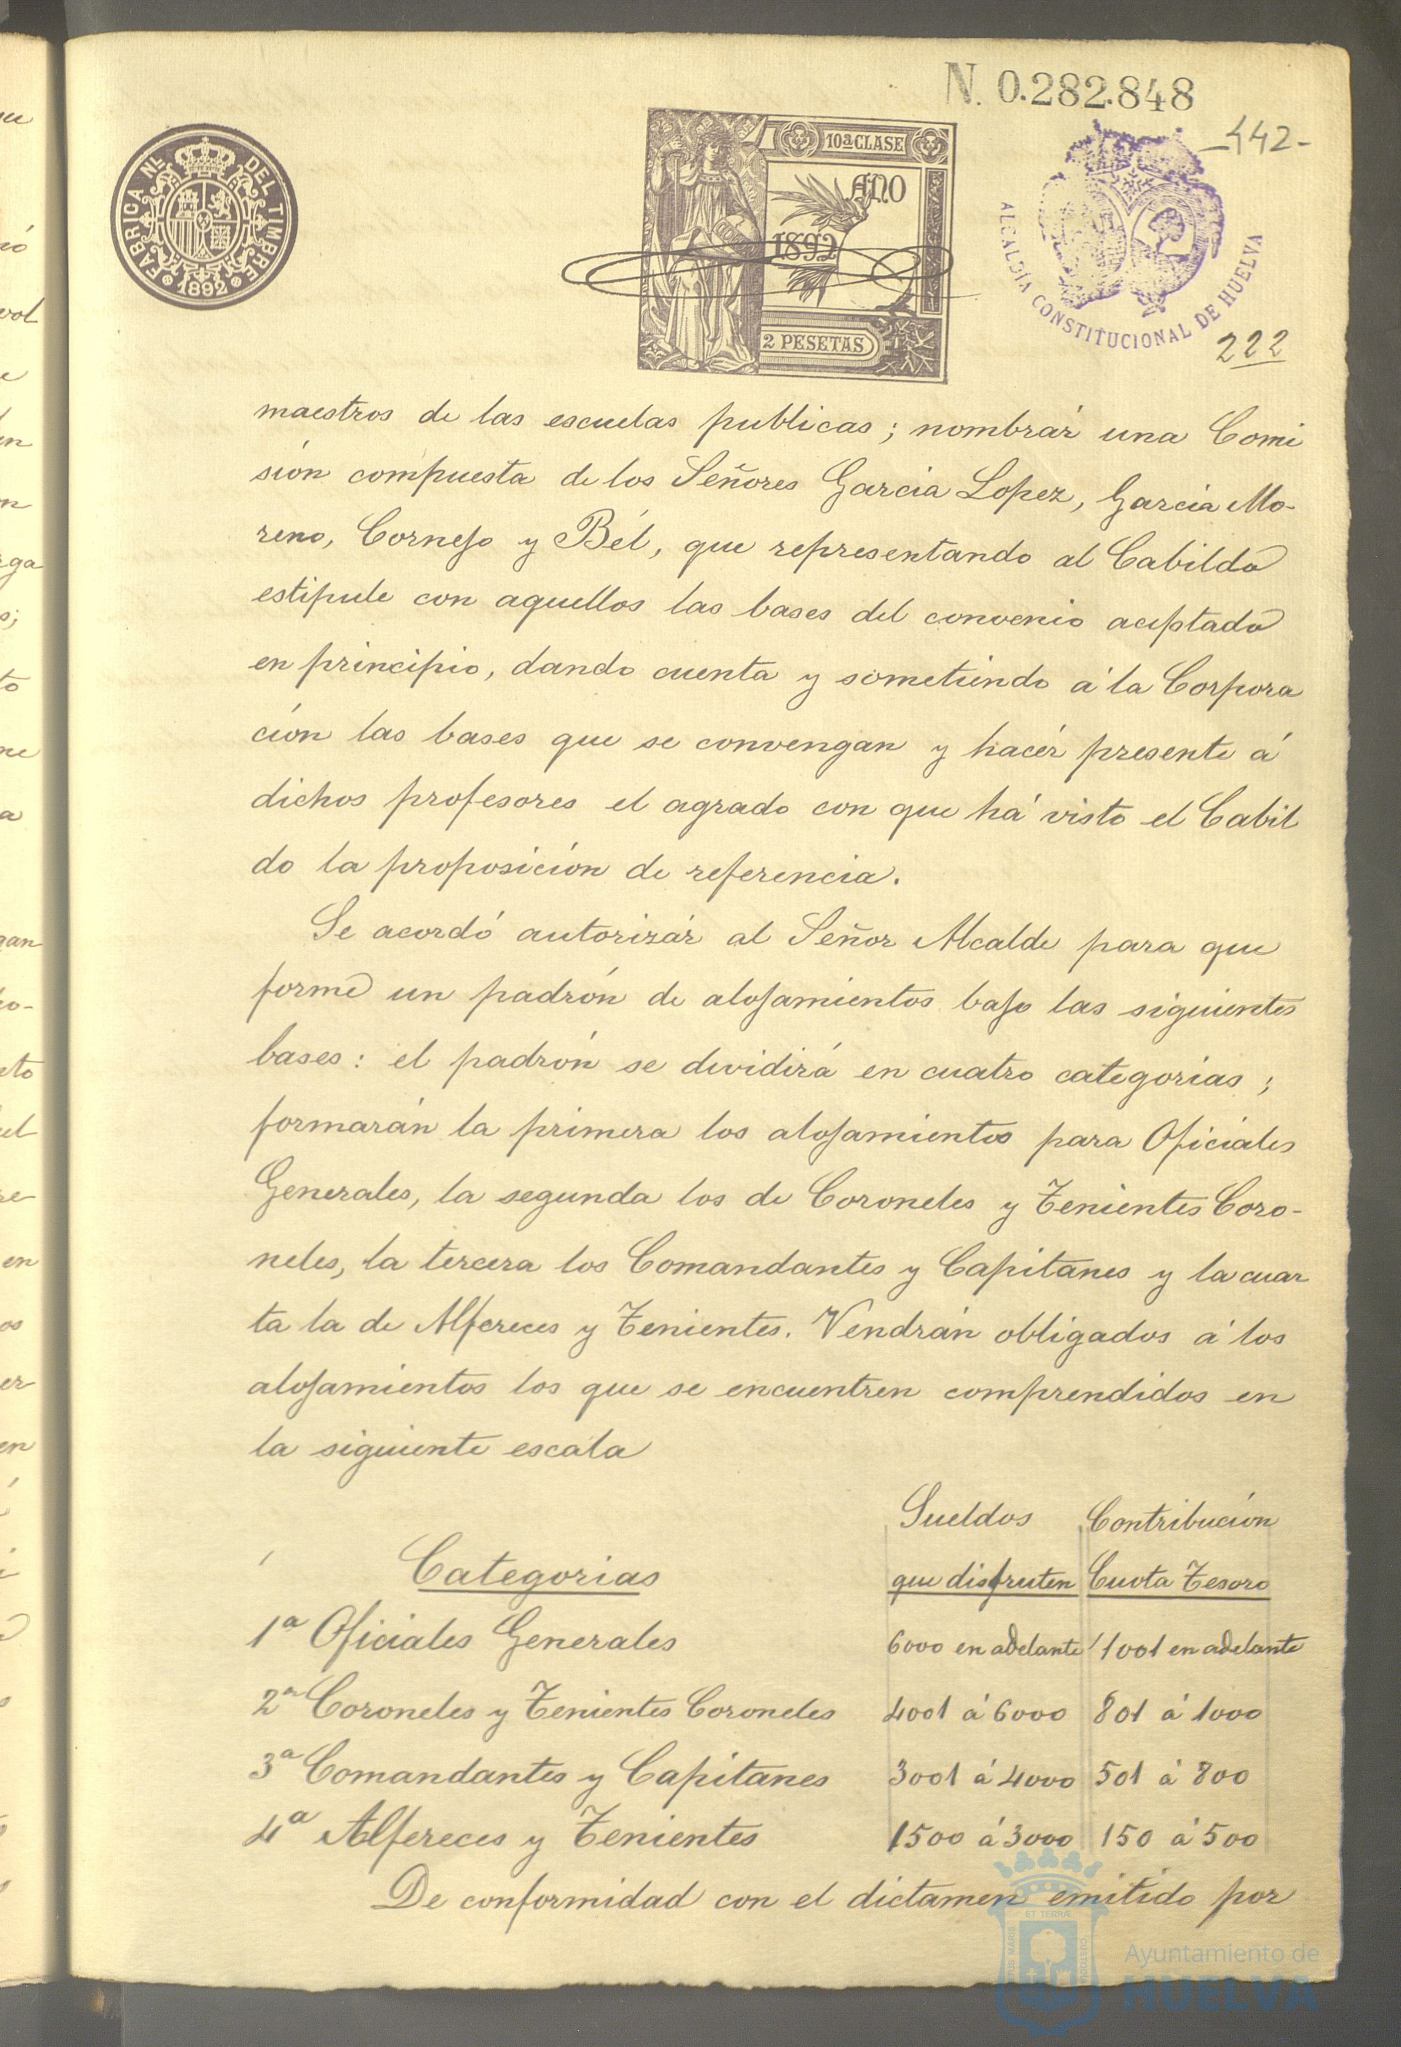 N. 0.282.848
-442-
FABRICA NL. DEL TIMBRE
1892
10ª CLASE
AÑO
1892
2 PESETAS
ALCALDÍA CONSTITUCIONAL DE HUELVA
222
maestros de las escuelas publicas; nombrár una Comi
sión compuesta de los Señores Garcia Lopez, Garcia Mo-
reno, Cornejo y Bél, que representando al Cabildo
estipule con aquellos las bases del convenio aceptado
en principio, dando cuenta y sometiendo á la Corpora
ción las bases que se convengan y hacér presente á
dichos profesores el agrado con que há visto el Cabil
do la proposición de referencia.
Se acordó autorizár al Señor Alcalde para que
forme un padrón de alojamientos bajo las siguientes
bases: el padrón se dividirá en cuatro categorias;
formarán la primera los alojamientos para Oficiales
Generales, la segunda los de Coroneles y Tenientes Coro-
neles, la tercera los Comandantes y Capitanes y la cuar
ta la de Alfereces y Tenientes. Vendrán obligados á los
alojamientos los que se encuentren comprendidos en
la siguiente escala
Sueldos Contribución
Categorias que disfruten Cuota Tesoro
1ª Oficiales Generales 6000 en adelante 1001 en adelante
2ª Coroneles y Tenientes Coroneles 4001 á 6000 801 á 1000
3ª Comandantes y Capitanes 3001 á 4000 501 á 800
4ª Alfereces y Tenientes 1500 á 3000 150 á 500
De conformidad con el dictamen emitido por
Ayuntamiento de
HUELVA